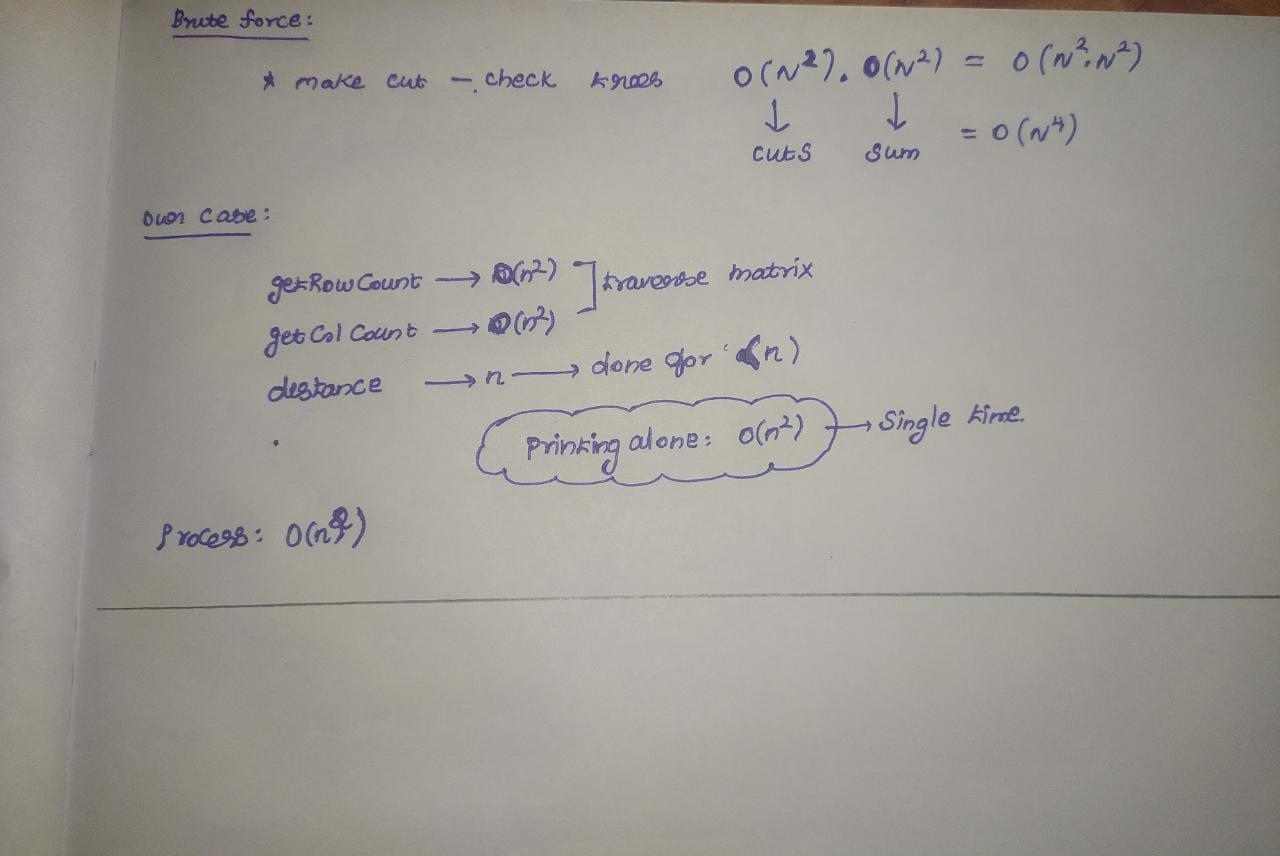 Brute force:
* make cut - check trees O(N²). O(N²) = O(N².N²)
↓ ↓
cuts sum = O(N⁴)
Our Case:
getRowCount → O(n²) ] traverse matrix
getColCount → O(n²)
distance → n → done for (n)
Printing alone: O(n²) → Single time.
Process: O(n²)